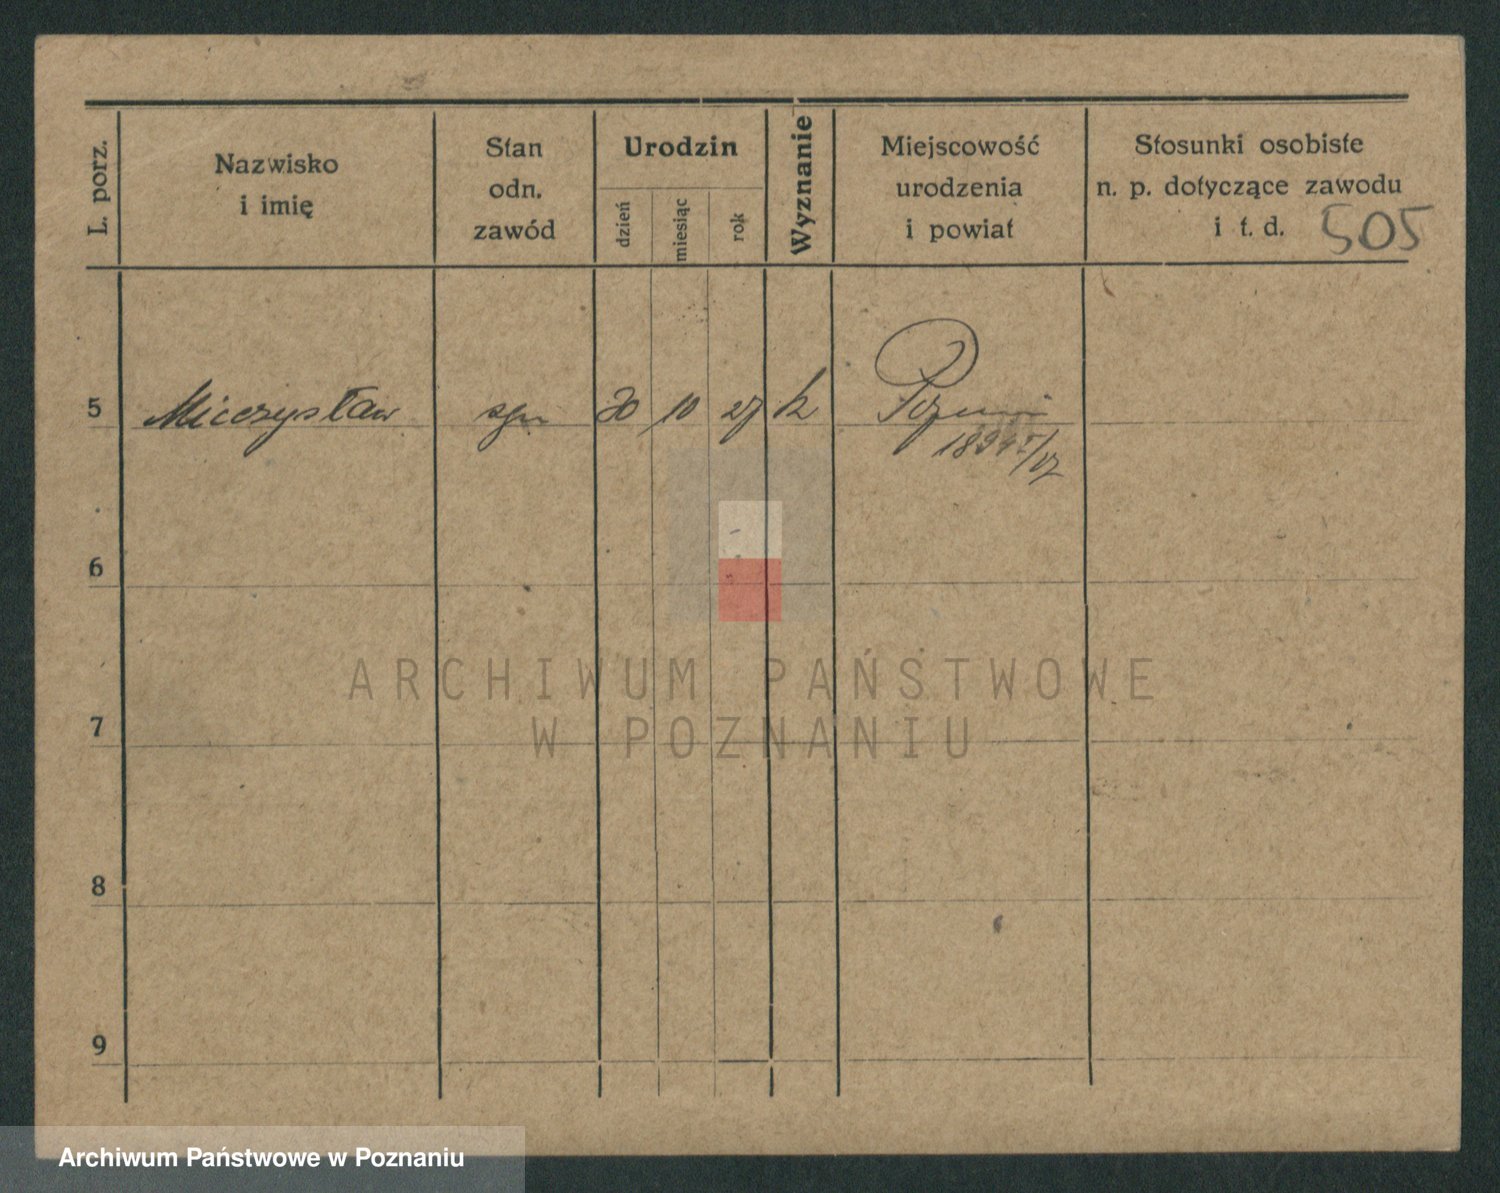 L. porz.
Nazwisko
i imię
Stan
odn.
zawód
Urodzin
dzień
miesiąc
rok
Wyznanie
Miejscowość
urodzenia
i powiat
Stosunki osobiste
n. p. dotyczące zawodu
i t. d.
505
5 Mieczysław syn 30 10 27 k
6
7
8
9
ARCHIWUM PAŃSTWOWE
W POZNANIU
Archiwum Państwowe w Poznaniu